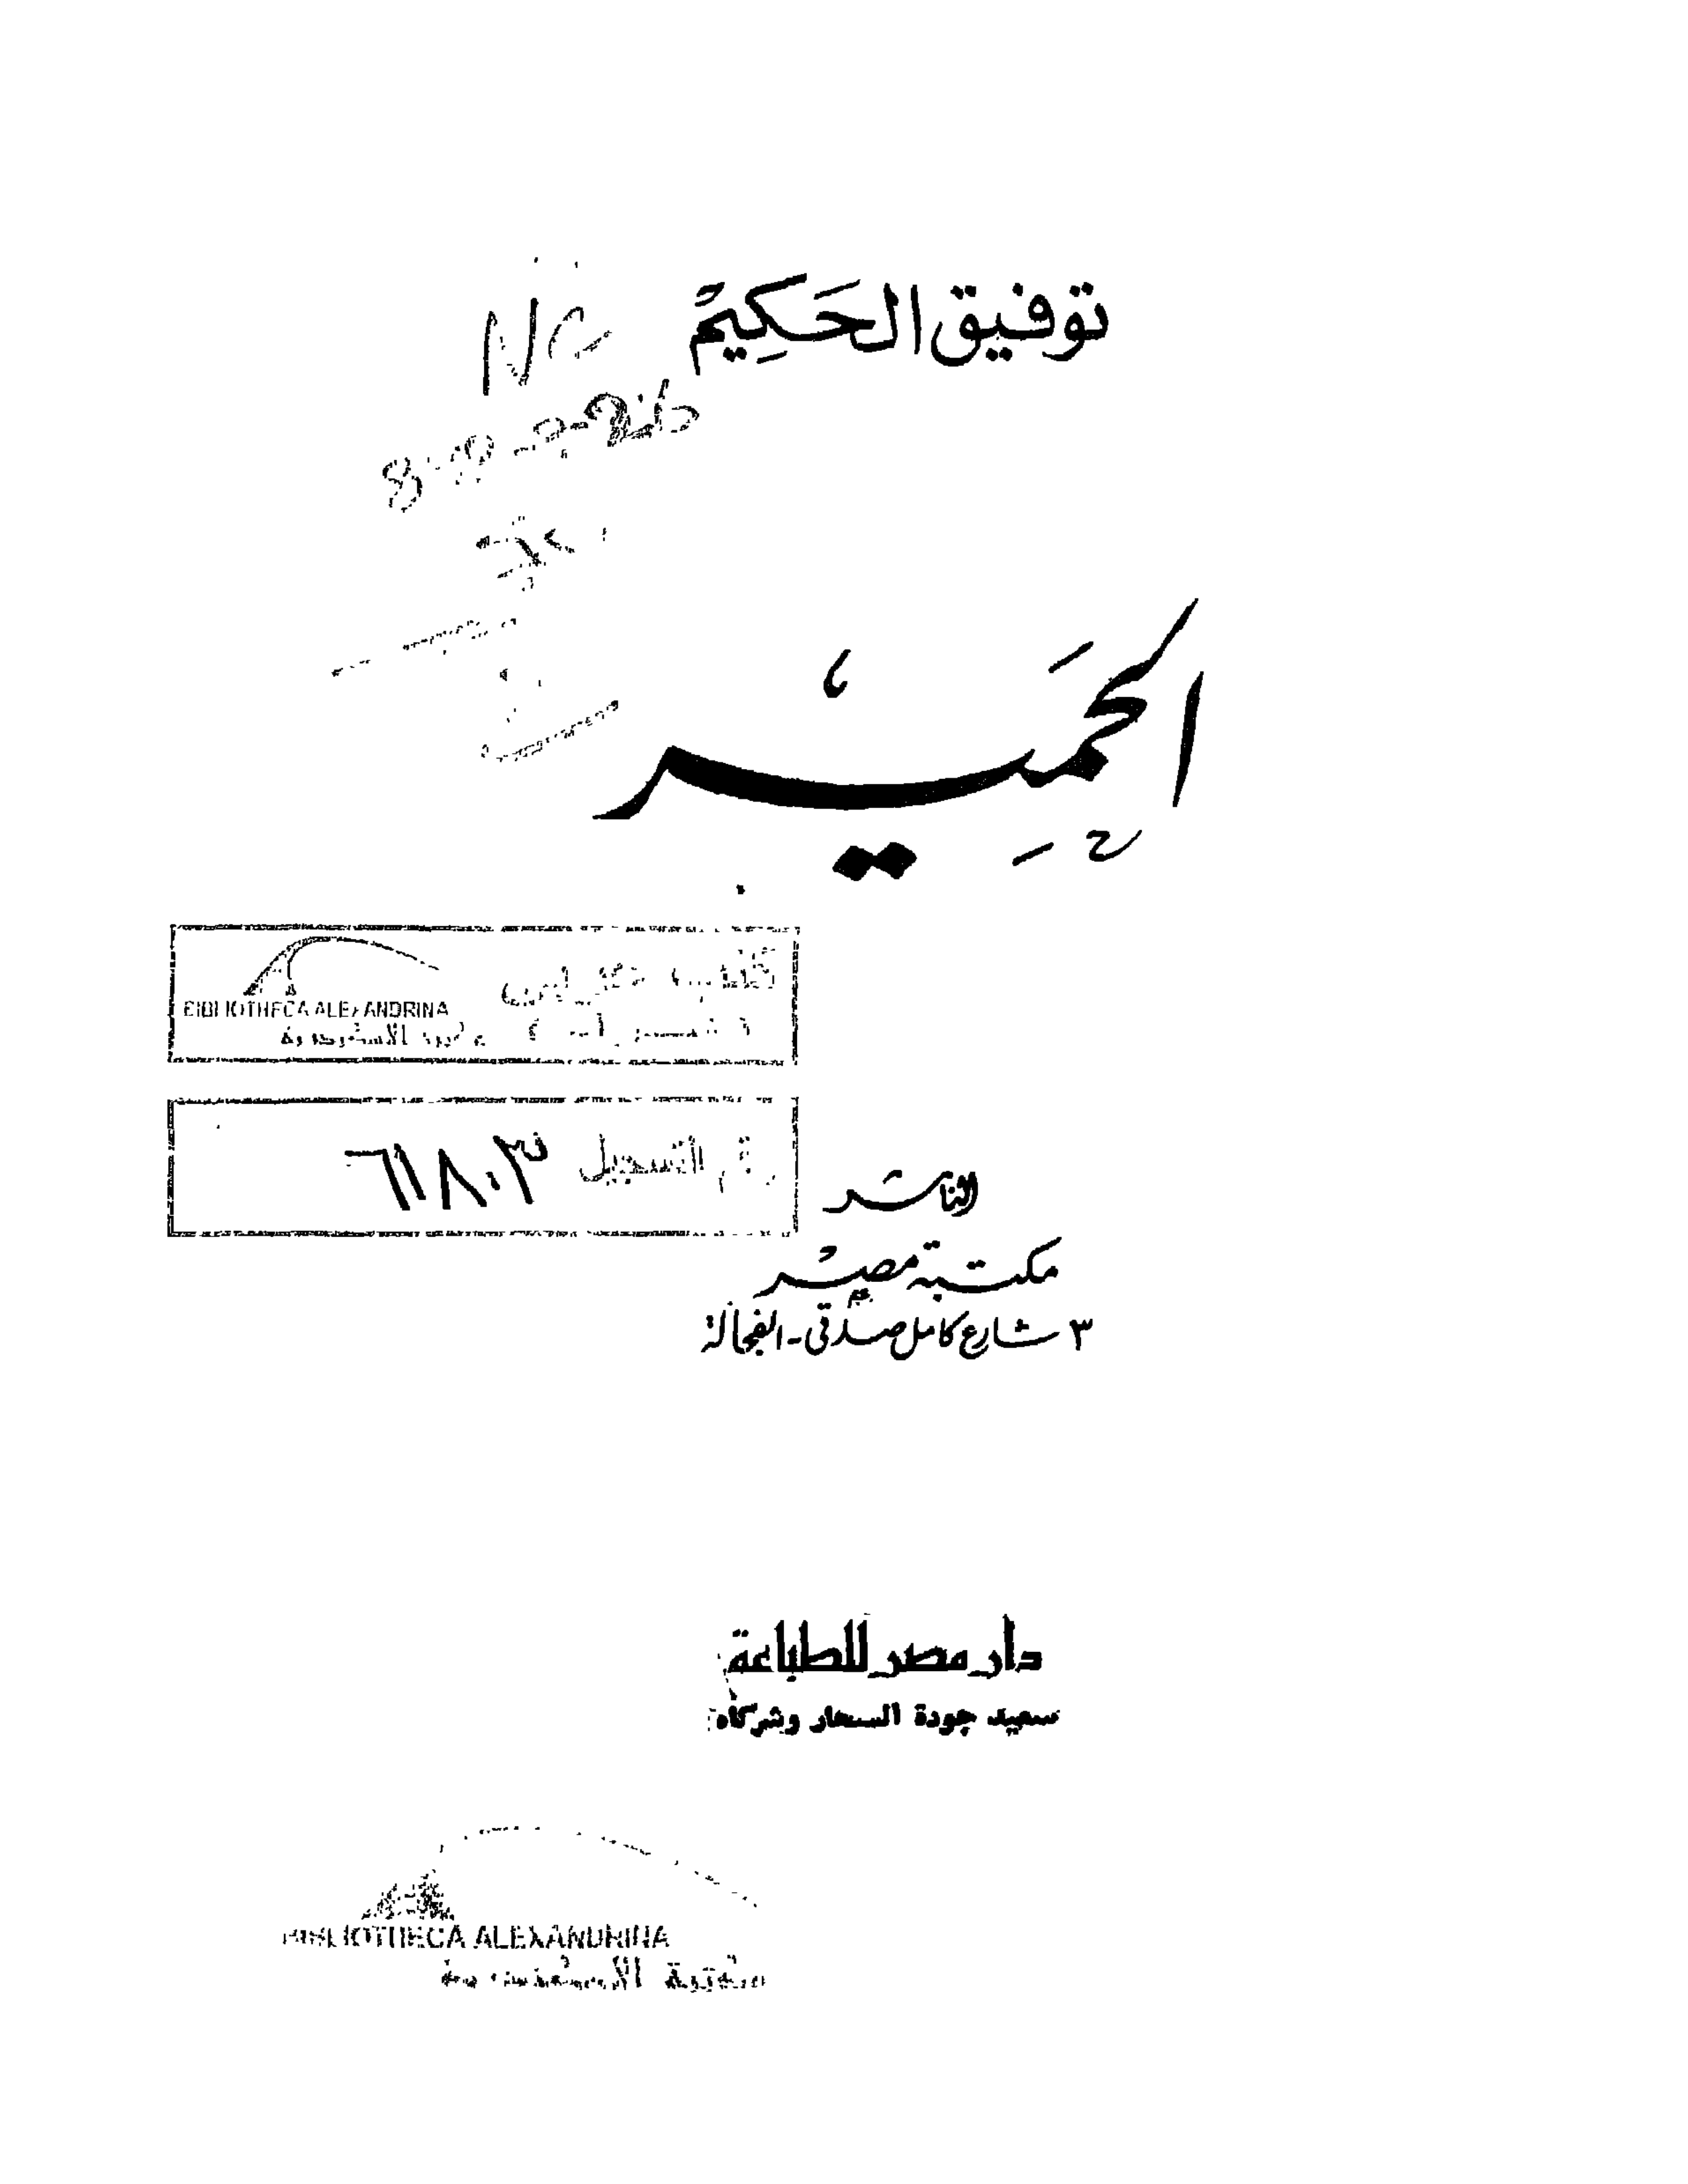 توفيق الحَكِيمْ
NC
الحَمِير
BIBLIOTHECA ALEXANDRINA
مكتبة الاسكندرية
رقم التسجيل ٦١٨٠٣
الناشر
مكتبة مصر
٣ شارع كامل صدقى - الفجالة
دار مصر للطباعة
سعيد جودة السحار وشركاه
BIBLIOTHECA ALEXANDRINA
مكتبة الاسكندرية